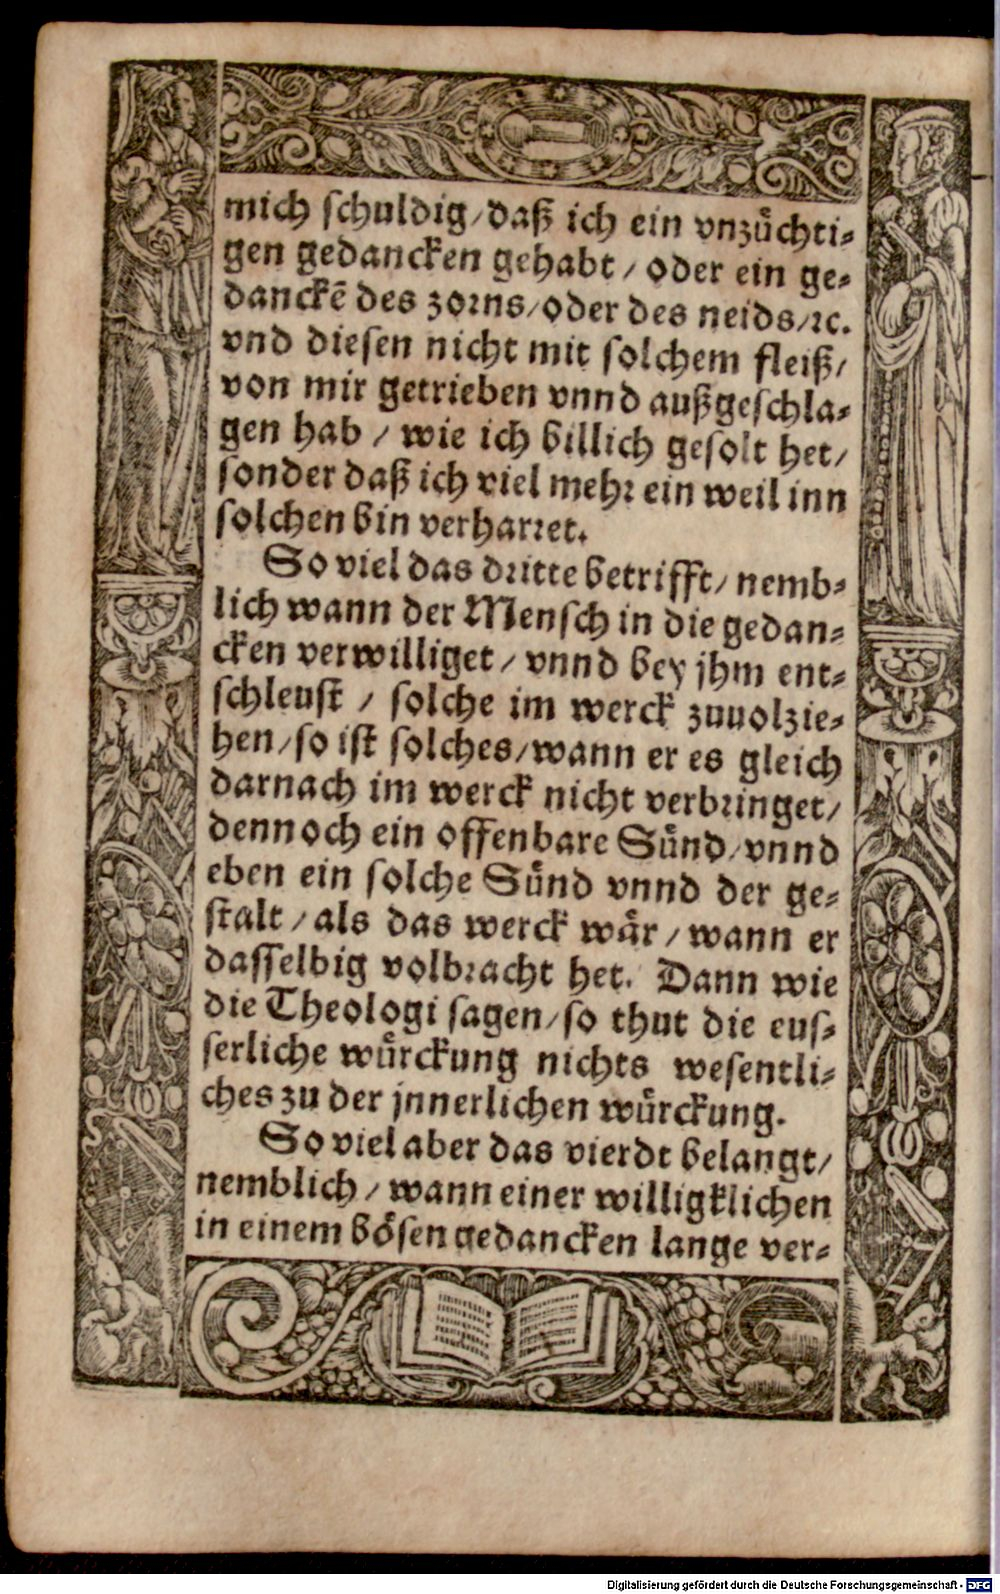 mich schuldig / daß ich ein vnzuͤchti⸗
gen gedancken gehabt / oder ein ge⸗
danckē des zorns / oder des neids / ꝛc.
vnd diesen nicht mit solchem fleiß /
von mir getrieben vnnd außgeschla⸗
gen hab / wie ich billich gesolt het /
sonder daß ich viel mehꝛ ein weil inn
solchen bin verharꝛet.
So viel das dꝛitte betrifft / nemb⸗
lich wann der Mensch in die gedan⸗
cken verwilliget / vnnd bey jhm ent⸗
schleust / solche im werck zuuolzie⸗
hen / so ist solches / wann er es gleich
darnach im werck nicht verbꝛinget /
dennoch ein offenbare Suͤnd / vnnd
eben ein solche Suͤnd vnnd der ge⸗
stalt / als das werck waͤr / wann er
dasselbig volbꝛacht het. Dann wie
die Theologi sagen / so thut die eus⸗
serliche wuͤrckung nichts wesentli⸗
ches zu der jnnerlichen wuͤrckung.
So viel aber das vierdt belangt /
nemblich / wann einer willigklichen
in einem boͤsen gedancken lange ver⸗
Digitalisierung gefördert durch die Deutsche Forschungsgemeinschaft - DFG